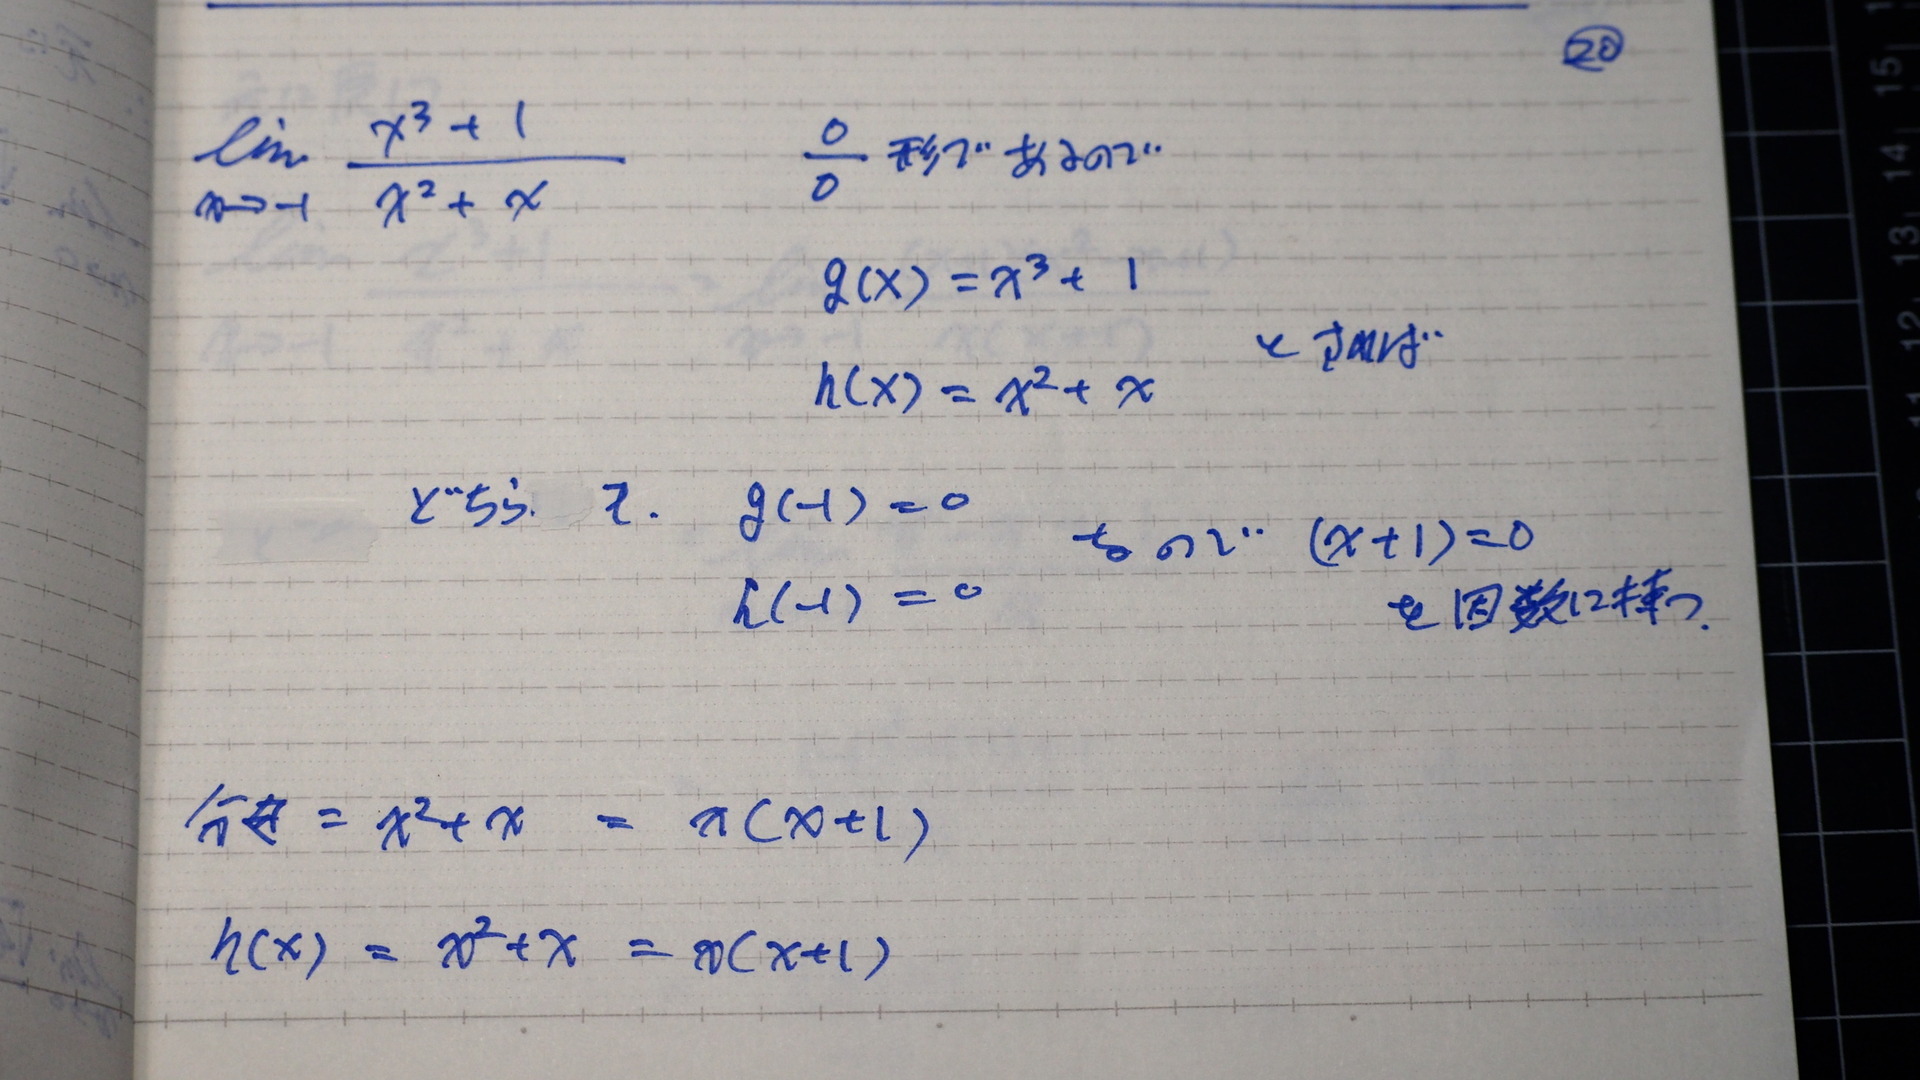 20
lim x→-1 (x³+1)/(x²+x) 0/0 形であるので
g(x) = x³ + 1
h(x) = x² + x
とすれば
どちらも. g(-1) = 0
h(-1) = 0
なので (x+1)=0
を因数に持つ.
分母 = x²+x = x(x+1)
h(x) = x²+x = x(x+1)
15
14
13
12
11